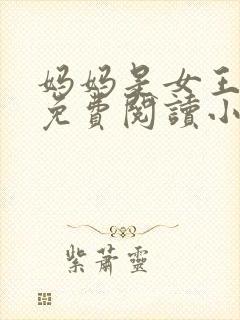 妈妈是女王
免費閱讀小
紫蕭靈